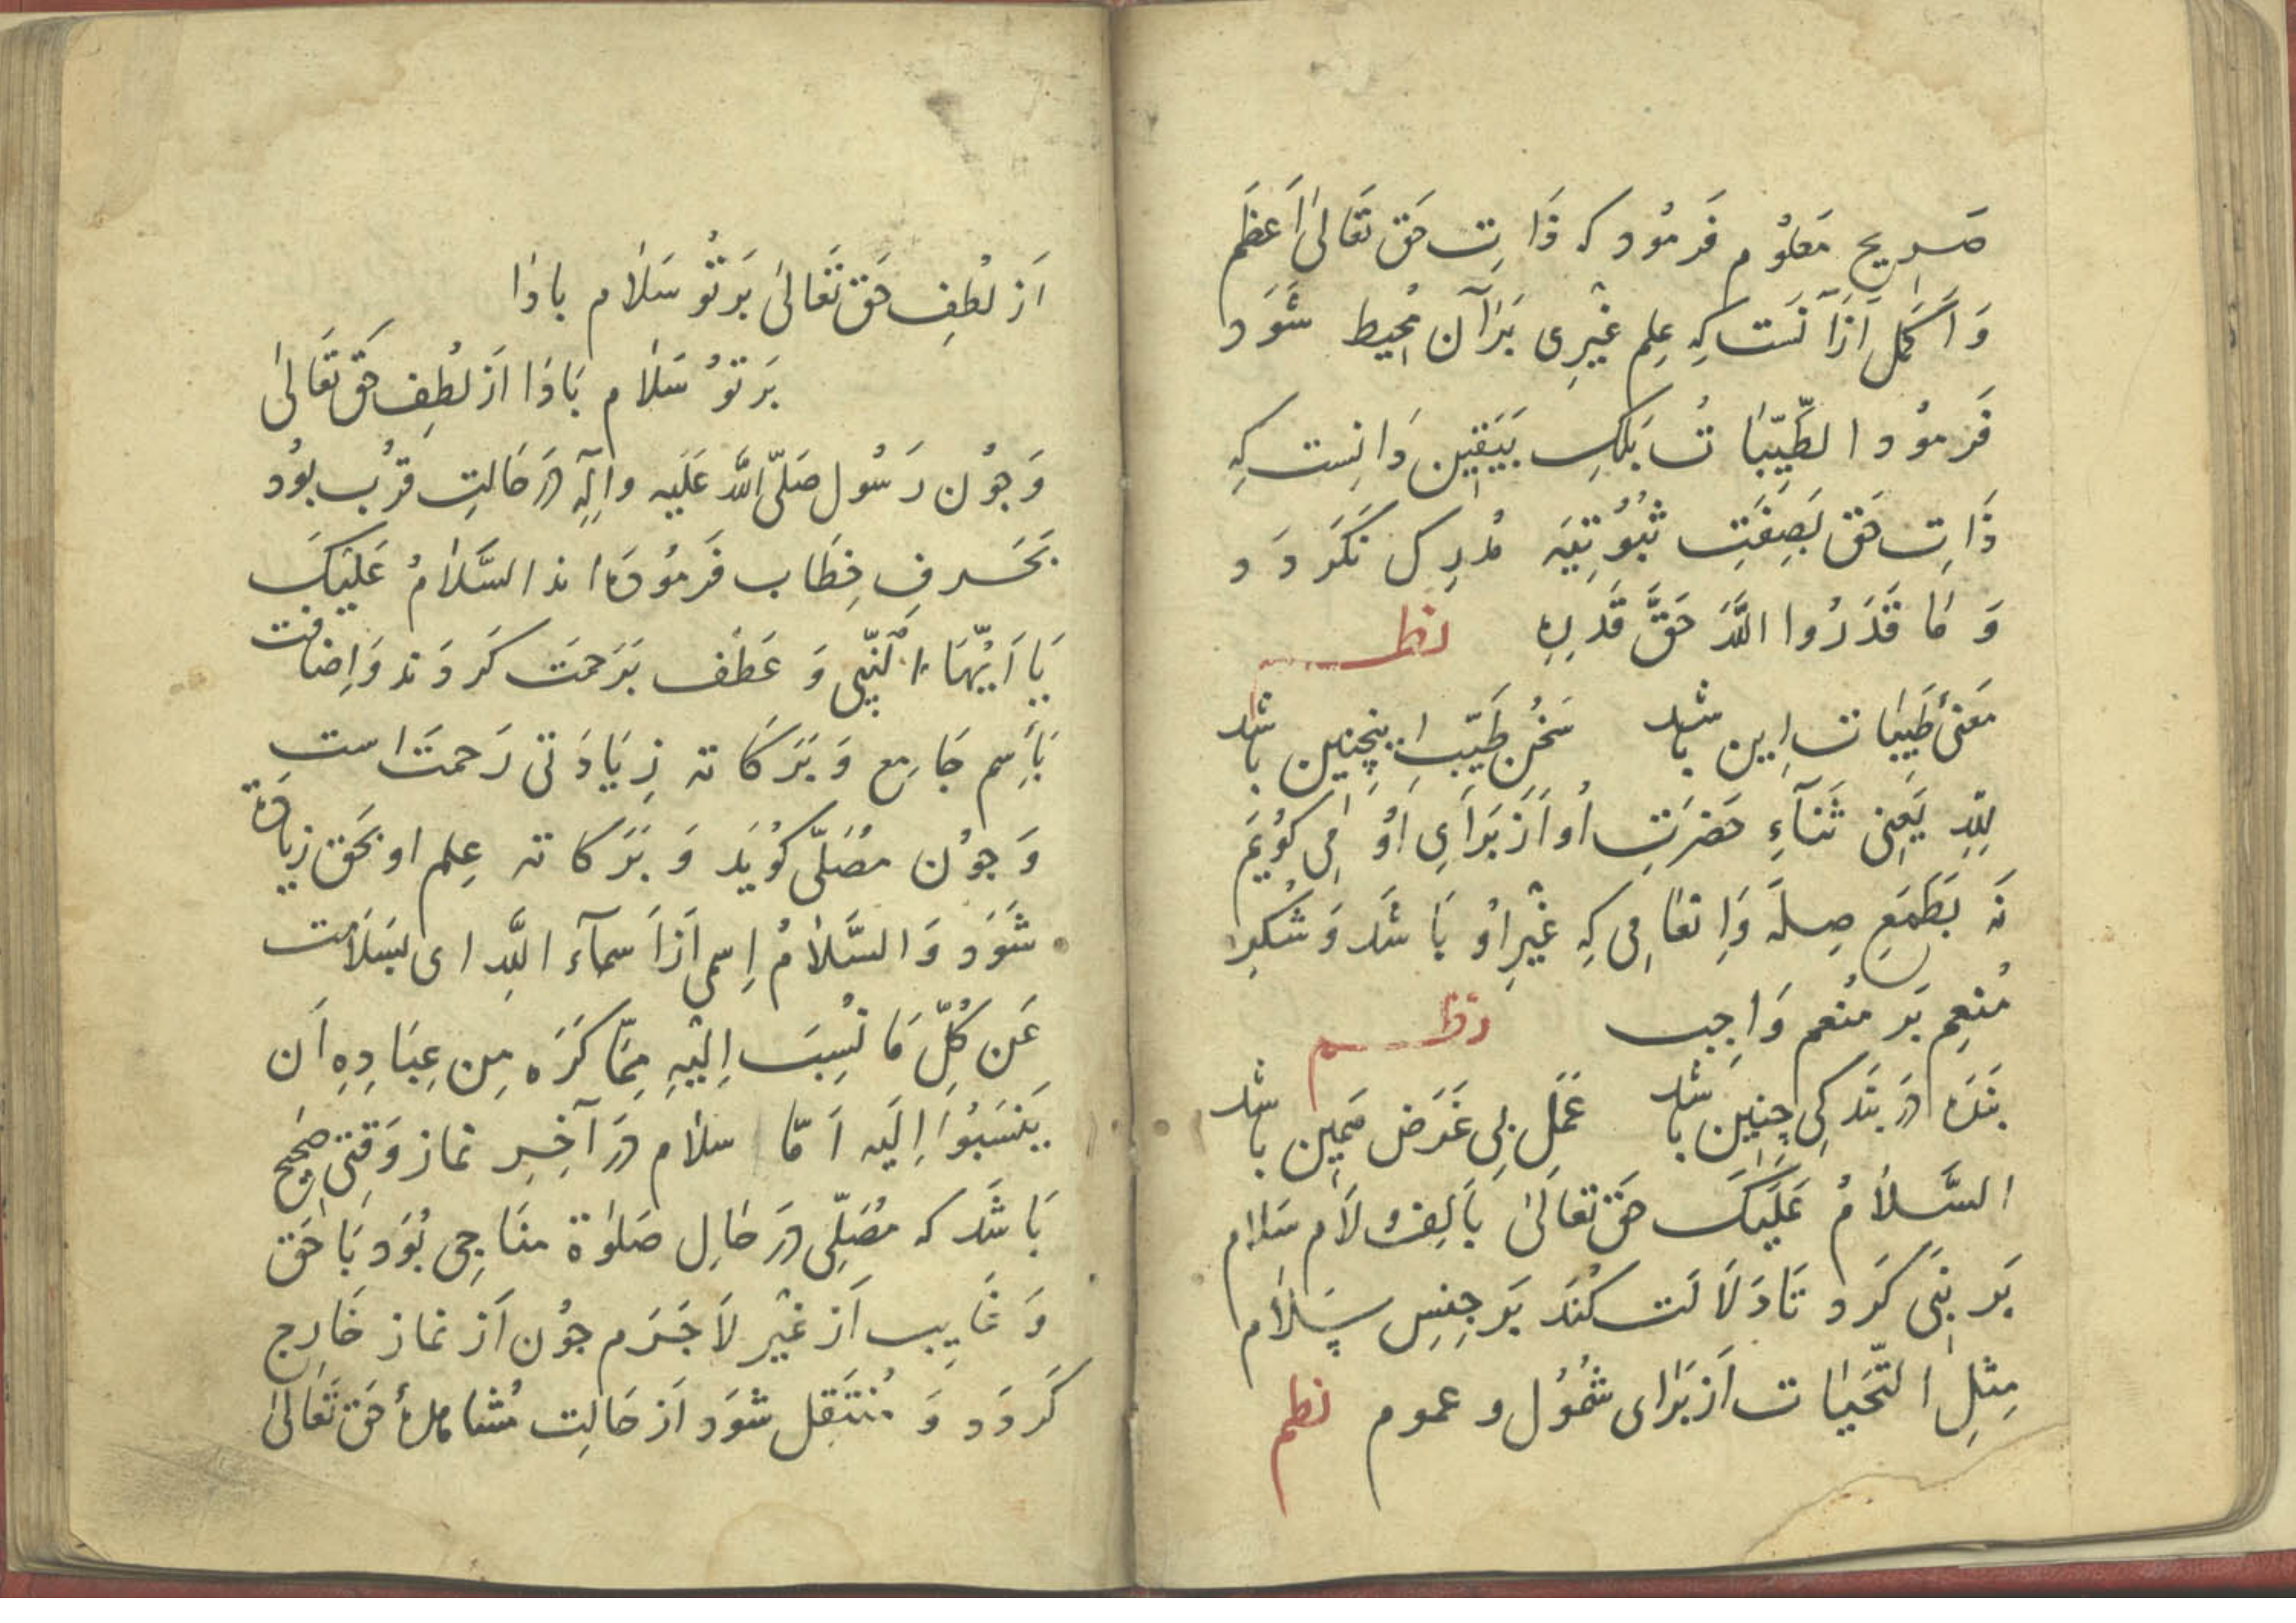 صَریحِ مَعلُوم فَرمُود که ذَاتِ حَق تَعَالیٰ اَعظَم
وَ اَکمَل اَزآنَست کِه عِلمِ غَیرِی بَرآن مُحِیط شَوَد
فَرمُود الطَّیِّبَاتُ بَلکِ بَیَقِین دَانِست کِه
ذَاتِ حَق بَصِفَتِ ثُبُوتِیَه مُدرِک نَگردَد و
وَ مَا قَدَرُوا اللَّهَ حَقَّ قَدرِهِ نظم
مَعنیٔ طَیِّبات اِین باشد سَخُنِ طَیِّب اِینچِنِین باشد
لِلّهِ یَعنِی ثَنآءِ حَضرَتِ اُو اَز بَرَایِ اُو مِی گُویَم
نَه بَطَمَعِ صِلَه وَ اِنعَامِی کِه غَیرِ اُو بَاشَد وَ شُکرِ
مُنعِم بَر مُنعَم وَاجِب نظم
بَندَه دَر بَندَکِی چِنِین باشد عَمَلِ بِی غَرَض هَمِین باشد
السَّلَامُ عَلَیکَ حَق تَعَالَیٰ بَاَلِف لَام سَلام
بَر نَبِی کَرد تَا دَلَالَت کُنَد بَر جِنسِ سَلَام
مِثلِ التَّحَیات اَز بَرای شُمُول و عموم نظم
اَز لُطفِ حَق تَعَالیٰ بَر تُو سَلَام بادَا
بَر تُو سَلَام بَادَا اَز لُطفِ حَق تَعَالیٰ
وَ جُون رَسُول صَلَّی اللّه عَلَیه وآلِه دَر حَالتِ قُرب بُود
بَحَرفِ خِطَاب فَرمُودَه اند السَّلَامُ عَلَیکَ
یَا اَیُّهَا النَّبِیُّ وَ عَطف بَرَحمَت کَردَند وَ اِضافت
بَاِسم جَامِع وَ بَرَکَاته زِیَادَتی رَحمَت است
وَ جُون مُصَلِّی گُویَد وَ بَرَکاته عِلم او بَحَق زیاده
شَوَد وَ السَّلَامُ اِسمی اَز اَسمآء اللّه ای بسَلَامت
عَن کُلِّ مَا نُسِبَ اِلَیهِ مِمَّا کَرَه مِن عِبَادِهِ اَن
یَنسَبُوا اِلَیه اَمَّا سلام دَر آخِرِ نماز وَقتِی صَحِیح
بَاشَد که مُصَلِّی دَر حَالِ صَلوٰة مناجِی بُوَد بَا حَق
وَ غَایِب اَز غَیر لَا جَرَم جُون اَز نماز خَارِج
کَردَد وَ مُنتَقِل شَوَد اَز حَالتِ مُشاهدهٔ حَق تَعَالیٰ